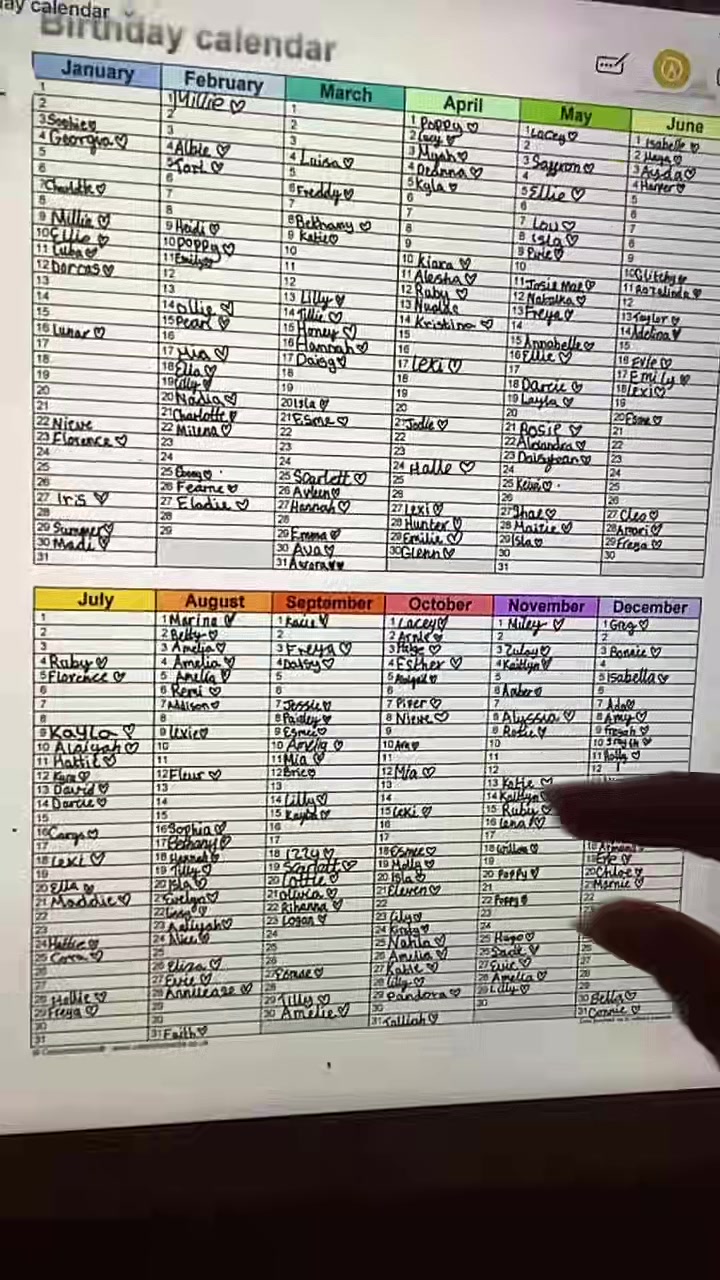 ay calendar
Birthday calendar
January
1
2
3 Sophie
4 Georgia
5
6
7 Charlotte
8
9 Millie
10 Ellie
11 Luba
12 Dorcas
13
14
15
16 Lunar
17
18
19
20
21
22 Nieve
23 Florence
24
25
26
27 Iris
28
29 Summer
30 Madi
31
February
1 Millie
2
3
4 Albie
5 Tori
6
7
8
9 Heidi
10 Poppy
11 Emily
12
13
14 Ollie
15 Pearl
16
17 Mia
18 Ella
19 Lilly
20 Nadia
21 Charlotte
22 Milena
23
24
25
26 Fearne
27 Elodie
28
29
March
1
2
3
4 Luisa
5
6 Freddy
7
8 Bethany
9 Katie
10
11
12
13 Lilly
14 Tillie
15 Honey
16 Hannah
17 Daisy
18
19
20 Isla
21 Esme
22
23
24
25 Scarlett
26 Ayleen
27 Hannah
28
29 Emma
30 Ava
31 Aurora
April
1 Poppy
2 Lucy
3 Myah
4 Deanna
5 Kyla
6
7
8
9
10 Kiara
11 Alesha
12 Ruby
13 Nualas
14 Kristina
15
16
17 Lexi
18
19
20
21 Jodie
22
23
24 Halle
25
26
27 Lexi
28 Hunter
29 Emilie
30 Glenn
May
1 Lacey
2
3 Saffron
4
5 Ellie
6
7 Lou
8 Isla
9 Evie
10
11 Josie Mae
12 Natalka
13 Freya
14
15 Annabelle
16 Ellie
17
18 Darcie
19 Layla
20
21 Rosie
22 Alexandra
23 Daisyjean
24
25
26
27
28 Maizie
29 Isla
30
31
June
1 Isabelle
2 Maya
3 Ayda
4 Harper
5
6
7
8
9
10 Glitchy
11 Rozalinda
12
13 Taylor
14 Adelina
15
16 Evie
17 Emily
18 Lexi
19
20 Esme
21
22
23
24
25
26
27 Cleo
28 Amari
29 Freya
30
July
1
2
3
4 Ruby
5 Florence
6
7
8
9 Kayla
10 Alaiyah
11 Hattie
12 Kyra
13 David
14 Darcie
15
16 Carys
17
18 Lexi
19
20 Ella
21 Maddie
22
23
24 Hattie
25
26
27
28 Hollie
29 Freya
30
31
August
1 Marina
2 Betty
3 Amelia
4 Amelia
5 Amelia
6 Remi
7 Addison
8
9 Lexie
10
11
12 Fleur
13
14
15
16 Sophia
17 Bethany
18 Hannah
19 Tilly
20 Isla
21 Evelyn
22
23 Aaliyah
24 Alice
25
26 Eliza
27 Evie
28 Annilease
29
30
31 Faith
September
1 Kacie
2
3 Freya
4 Daisy
5
6
7 Jessie
8 Paisley
9 Esmee
10 Amelia
11 Mia
12 Brice
13
14 Lilly
15 Kayla
16
17
18 Izzy
19 Scarlett
20 Lottie
21 Olivia
22 Rihanna
23 Logan
24
25
26
27
28
29 Tilly
30 Amelie
October
1 Lacey
2 Arnie
3 Paige
4 Esther
5 Abigail
6
7 Piper
8 Nieve
9
10
11
12 Mia
13
14
15 Lexi
16
17
18 Esmee
19 Molly
20 Isla
21 Eleven
22
23 Lily
24
25 Nahla
26 Amelia
27 Katie
28 Lilly
29 Pandora
30
31 Talliah
November
1 Miley
2
3 Zulay
4 Kaitlyn
5
6 Amber
7
8 Alyssia
9 Rosie
10
11
12
13 Katie
14 Kaitlyn
15 Ruby
16 Lena
17
18 Willow
19
20 Poppy
21
22 Poppy
23
24
25 Hugo
26 Sadie
27 Evie
28 Amelia
29 Lilly
30
December
1 Greg
2
3 Bonnie
4
5 Isabella
6
7 Ada
8 Amy
9 Freyah
10
11 Holly
12
19 Evie
20 Chloe
21 Marnie
22
28
29
30 Bella
31 Connie